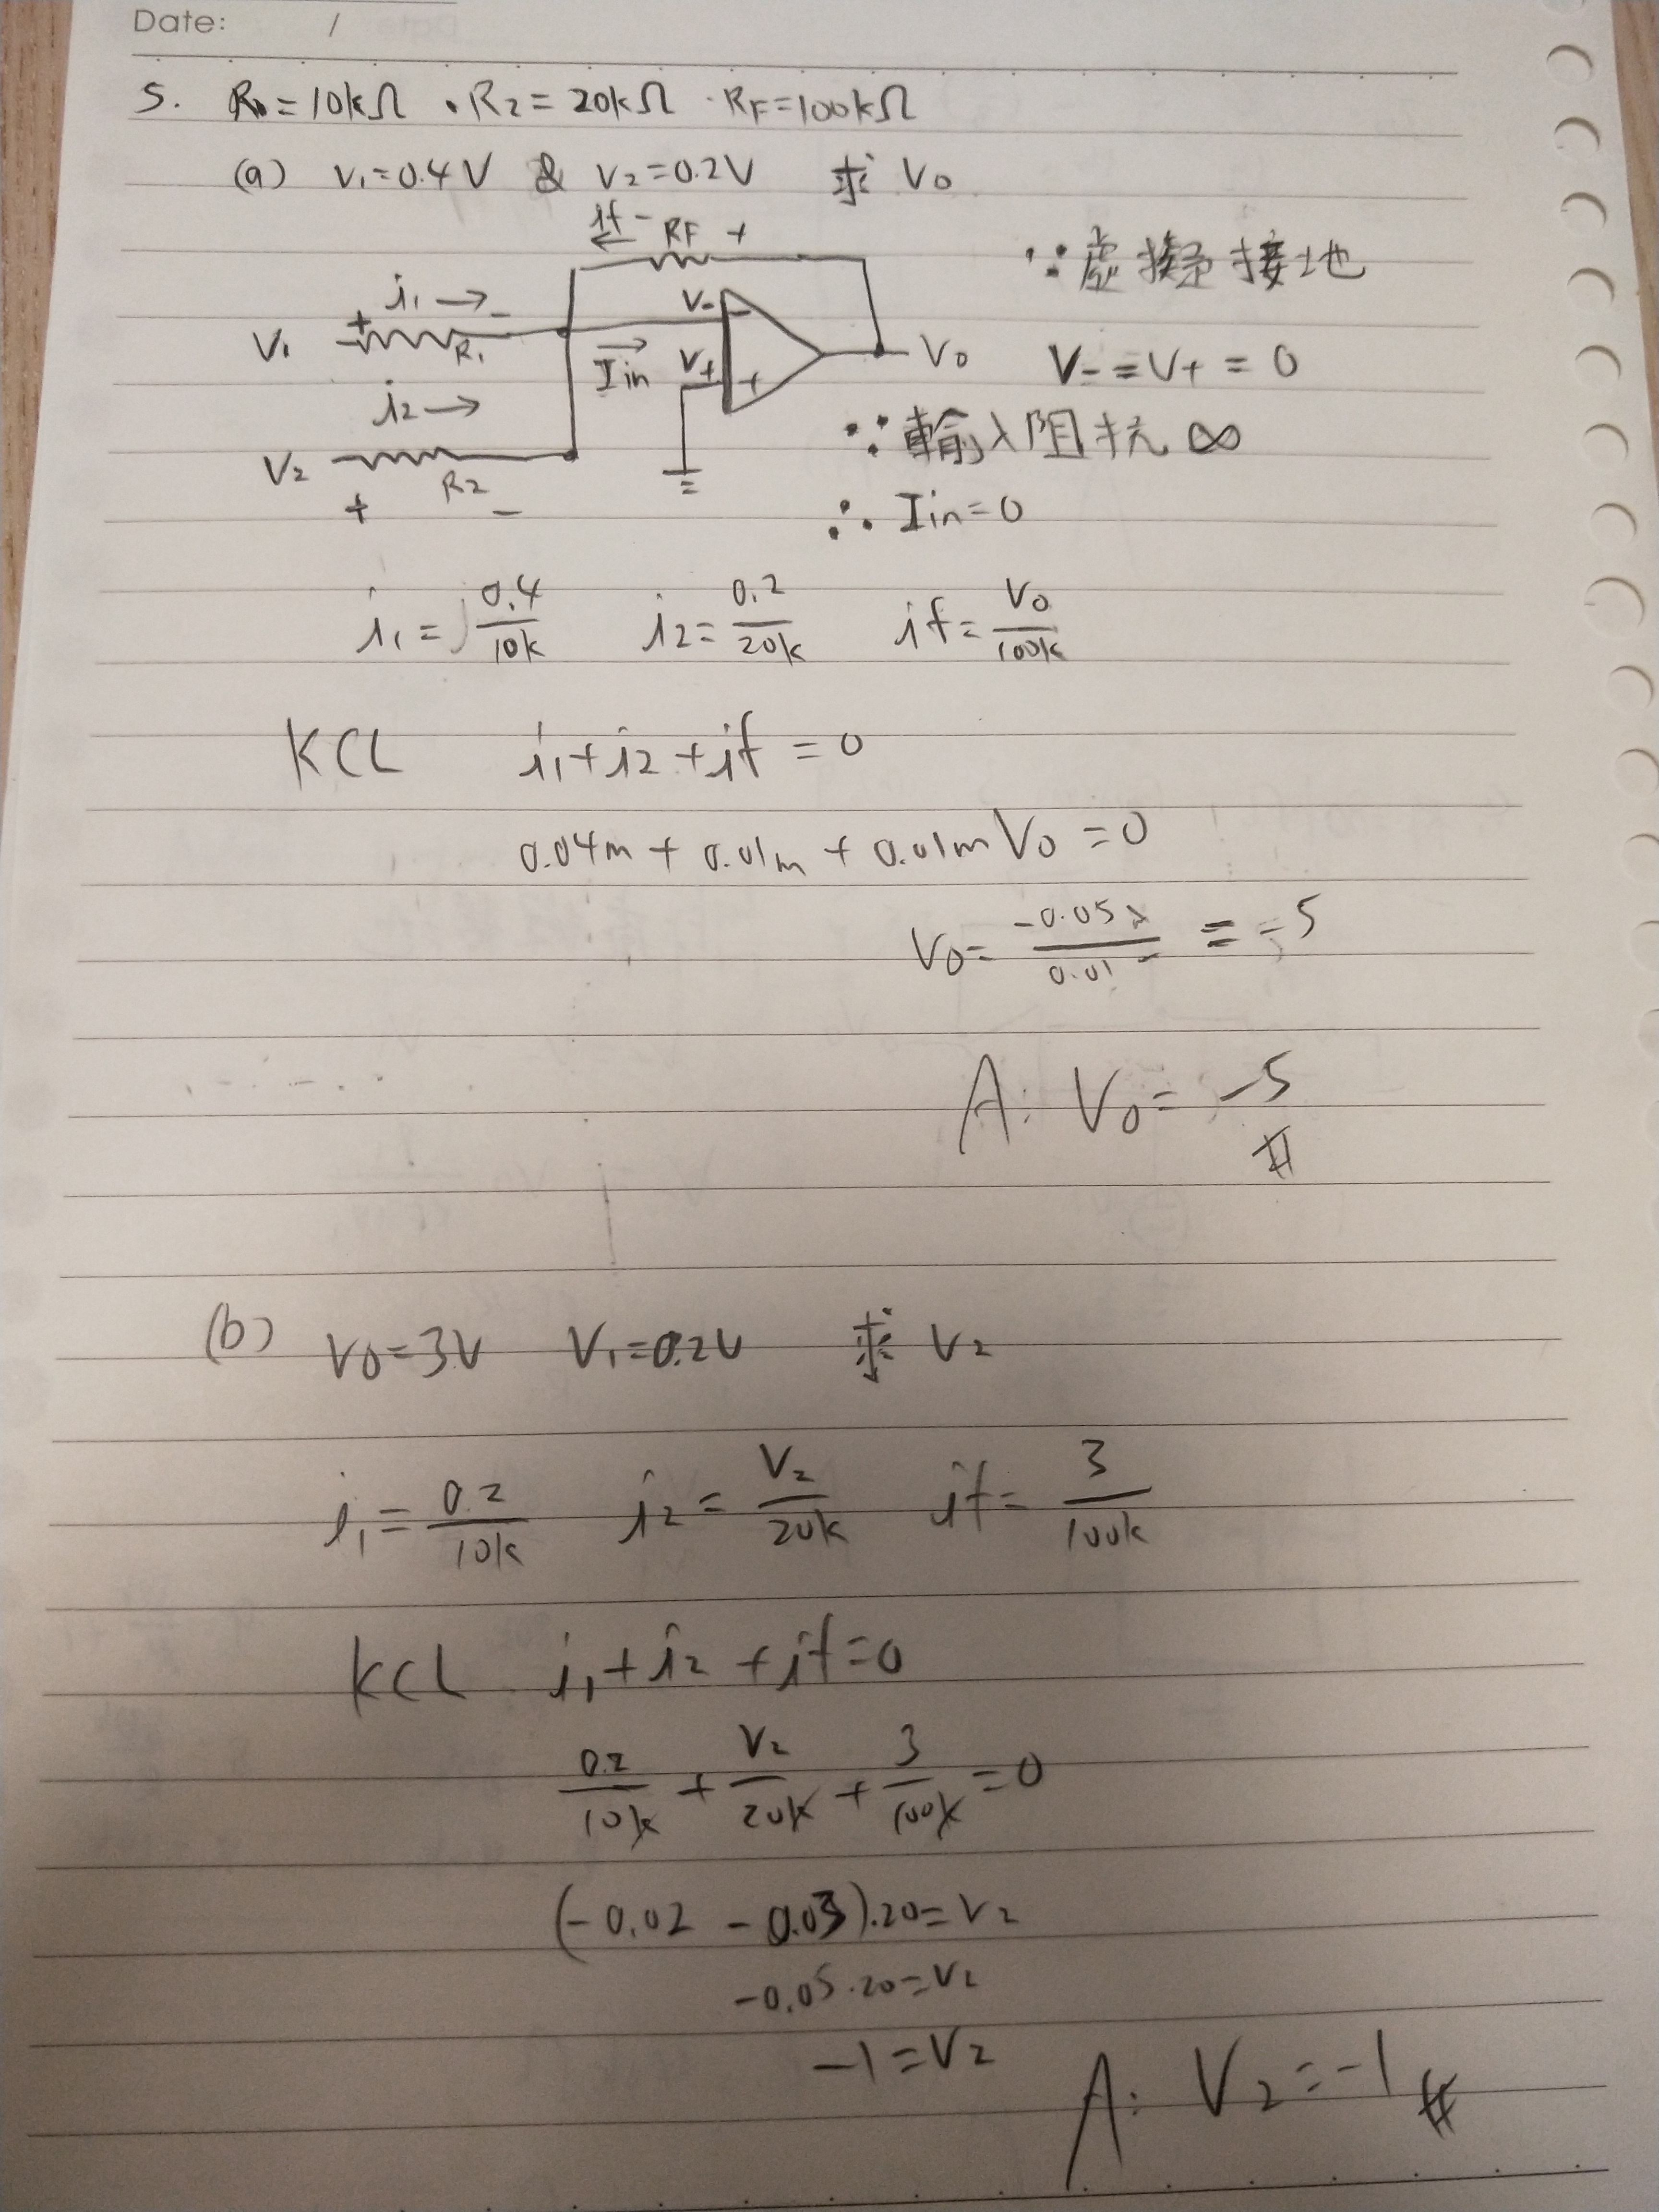 Date: /
5. R₁=10kΩ . R₂=20kΩ . RF=100kΩ
(a) V₁=0.4V & V₂=0.2V 求 Vo
if ← - RF +
∵虛擬接地
i₁→
V₁ + R₁ -
V-
Iin →
V+
Vo
V-=V+=0
i₂→
V₂ + R₂ -
∵輸入阻抗∞
∴ Iin=0
i₁=0.4/10k i₂=0.2/20k if=Vo/100k
KCL i₁+i₂+if=0
0.04m+0.01m+0.01mVo=0
Vo=-0.05/0.01=-5
A: Vo=-5 #
(b) Vo=3V V₁=0.2V 求 V₂
i₁=0.2/10k i₂=V₂/20k if=3/100k
KCL i₁+i₂+if=0
0.2/10k+V₂/20k+3/100k=0
(-0.02-0.03).20=V₂
-0.05.20=V₂
-1=V₂
A: V₂=-1 #